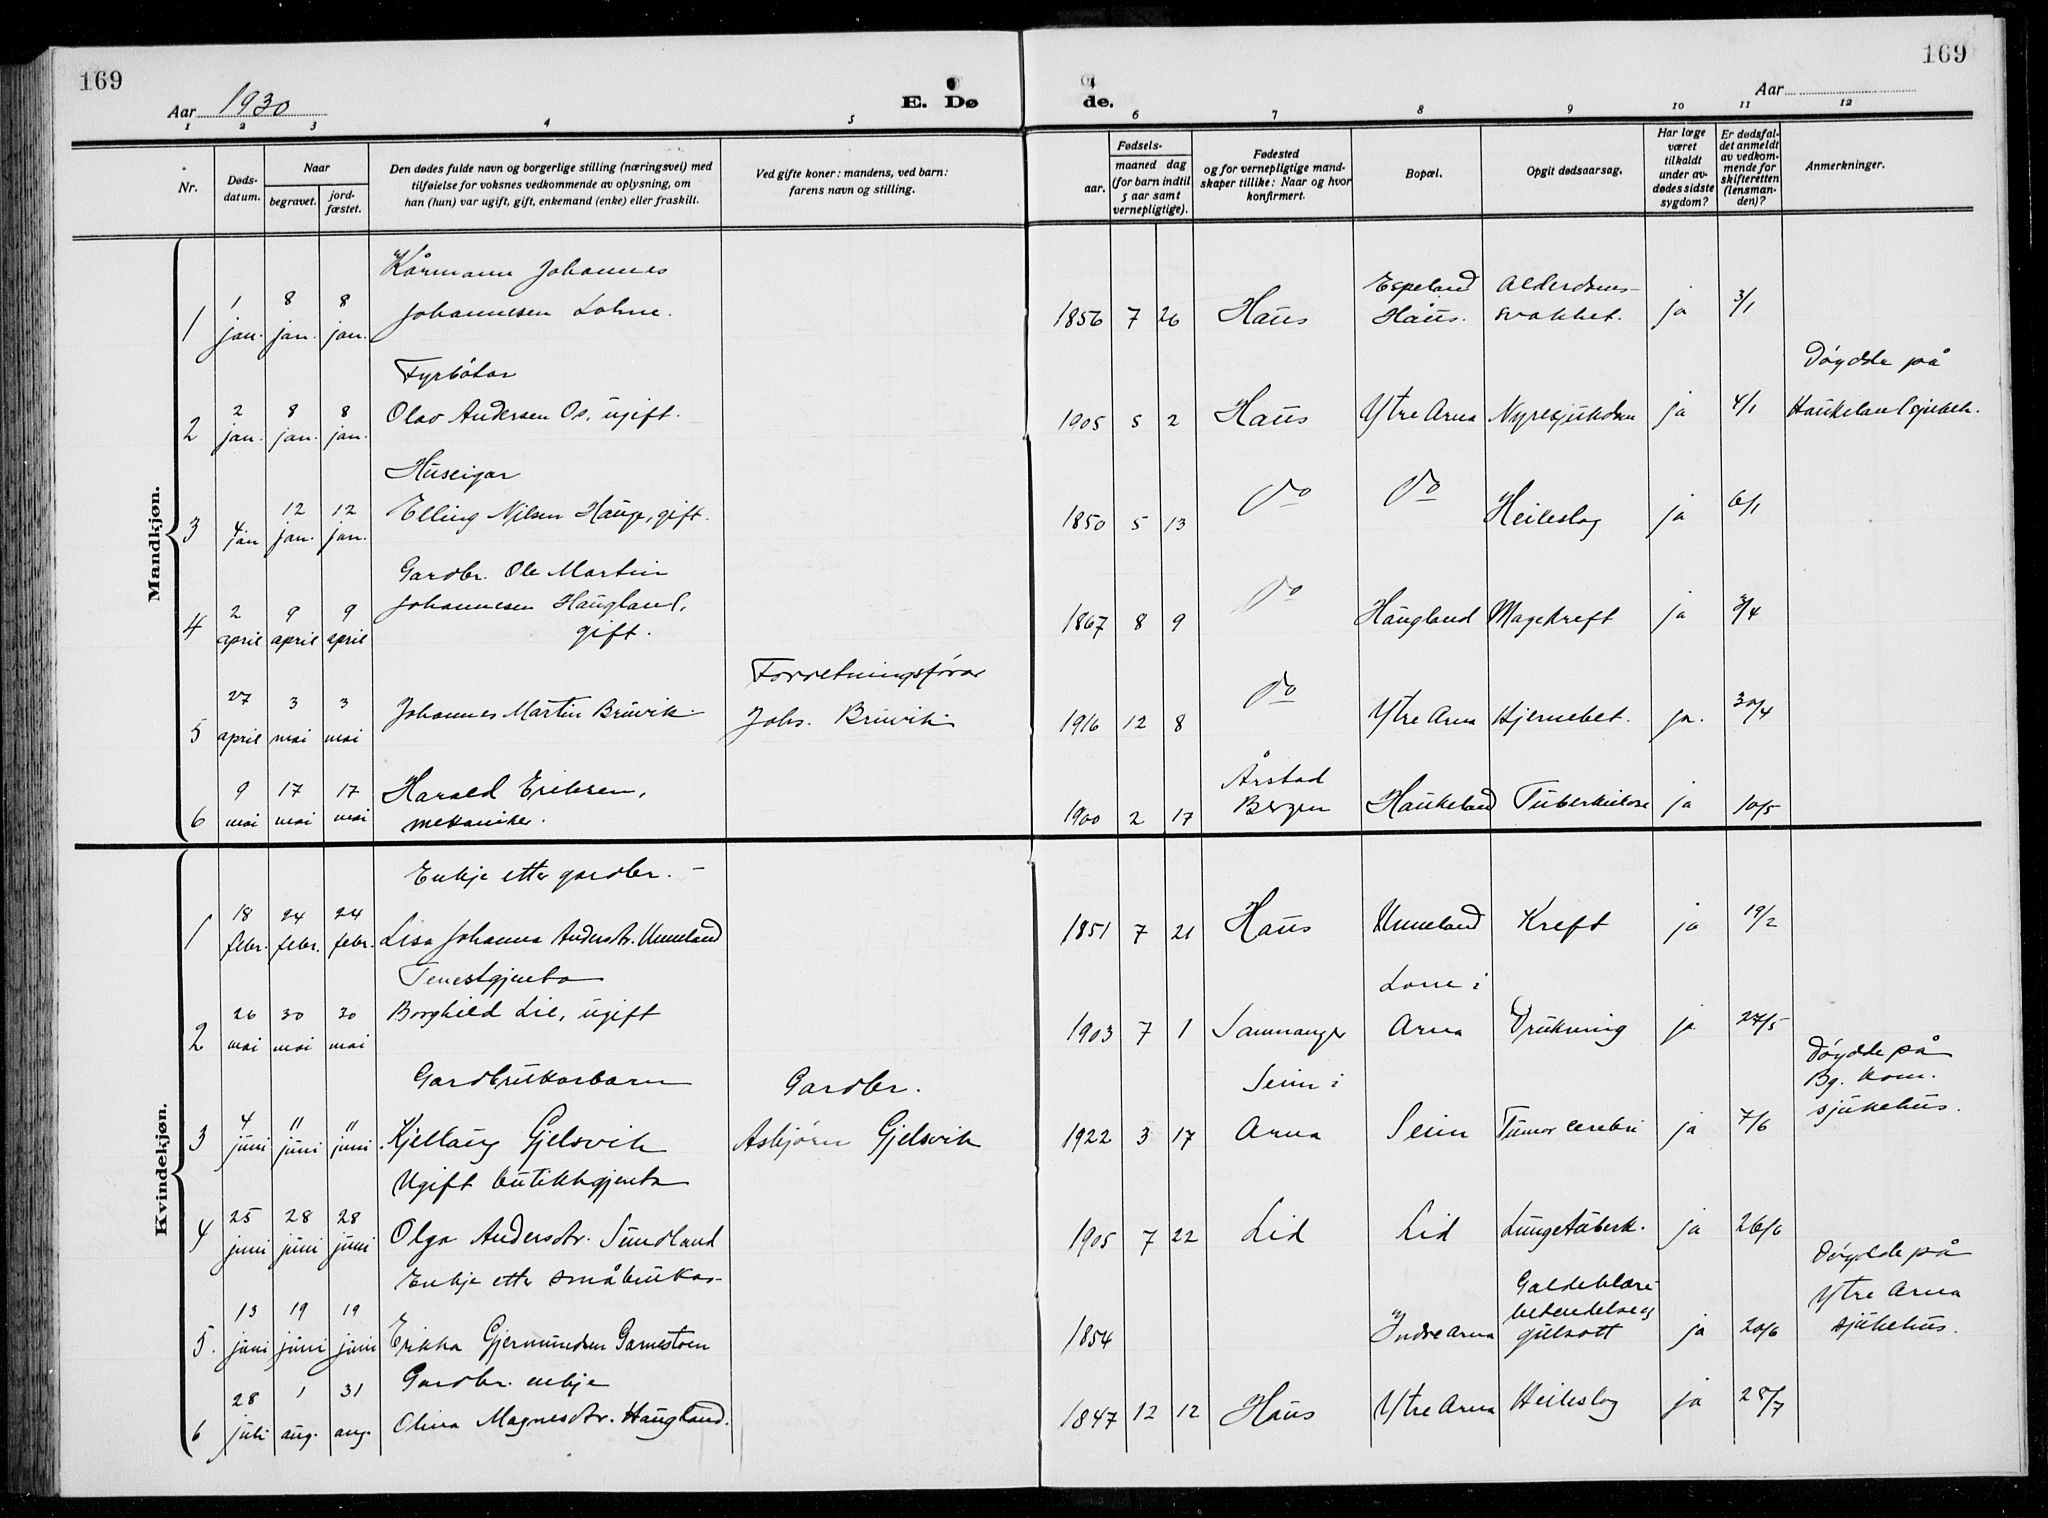 169
169
Aar 1930
E. Dø
de.
Aar
1 2 3 4 5 6 7 8 9 10 11 12
Nr.
Døds-
datum.
Naar
begravet.
jord-
fæstet.
Den dødes fulde navn og borgerlige stilling (næringsvei) med
tilføielse for voksnes vedkommende av oplysning, om
han (hun) var ugift, gift, enkemand (enke) eller fraskilt.
Ved gifte koner: mandens, ved barn:
farens navn og stilling.
Fødsels-
aar.
maaned dag
(for barn indtil
5 aar samt
vernepligtige).
Fødested
og for vernepligtige mand-
skaper tillike: Naar og hvor
konfirmert.
Bopæl.
Opgit dødsaarsag.
Har læge
været
tilkaldt
under av-
dødes sidste
sygdom?
Er dødsfal-
det anmeldt
av vedkom-
mende for
skifteretten
(lensman-
den)?
Anmerkninger.
Mandkjøn.
Kårmann Johannes
1 1 jan. 8 jan. 8 jan. Johannesen Lohne. 1856 7 26 Haus Espeland Haus. Alderdoms- svakhet. ja 3/1
Fyrbøtar
2 2 jan. 8 jan. 8 jan. Olav Andersen Os, ugift. 1905 5 2 Haus Ytre Arna Nyresjukdom ja 4/1 Døydde på Haukeland sjukeh.
Huseigar
3 4 jan 12 jan. 12 jan. Elling Nilsen Hauge, gift. 1850 5 13 do do Heileslag ja 6/1
Gardbr. Ole Martin
4 2 april 9 april 9 april Johannesen Haugland, gift. 1867 8 9 do Haugland Magekreft ja 3/4
Forretningsførar
5 27 april 3 mai 3 mai Johannes Martin Bruvik. Johs. Bruvik. 1916 12 8 do Ytre Arna Hjernebet. ja. 30/4
6 9 mai 17 mai 17 mai Harald Eriksen, mekaniker. 1900 2 17 Årstad Bergen Haukeland Tuberkulose ja 10/5
Kvindekjøn.
Enkje etter gardbr. -
1 18 febr. 24 febr. 24 febr. Lisa Johanna Andersdr. Unneland 1851 7 21 Haus Unneland Kreft ja 19/2
Tenestgjenta
2 26 mai 30 mai 30 mai Borghild Lie, ugift 1903 7 1 Samnanger Lone i Arna Drukning ja 27/5
Gardbrukarbarn Gardbr.
3 4 juni 11 juni 11 juni. Kjellaug Gjelsvik Asbjørn Gjelsvik 1922 3 17 Seim i Arna Seim Tumor cerebri ja 7/6 Døydde på Bg. kom. sjukehus.
Ugift butikkgjenta
4 25 juni 28 juni 28 juni Olga Andersdr. Sundland 1905 7 22 Lid Lid Lungetuberk. ja 26/6
Enkje etter småbrukar
5. 13 juni 19 juni 19 juni Erikka Gjermundsen Garnestoen 1854 Indre Arna Galdeblære- betendelse og gulsott ja 20/6 Døydde på Ytre Arna sjukehus.
Gardbr. enkje
6 28 juli 1 aug. 31 aug. Olina Magnesdtr. Haugland. 1847 12 12 Haus Ytre Arna Heileslag ja 28/7